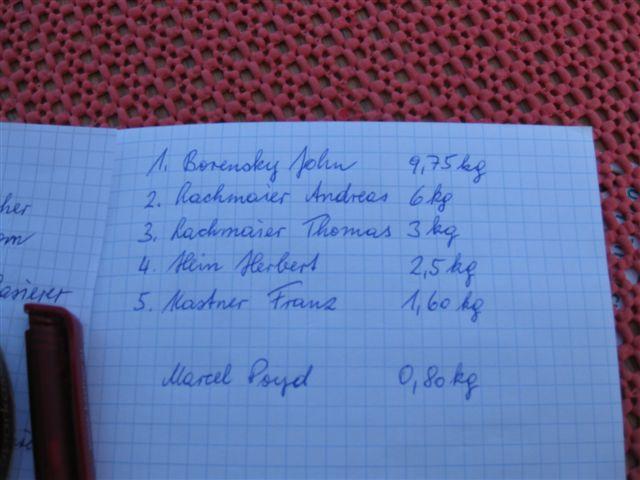 1. Borensky John 9,75 kg
2. Lachmaier Andreas 6 kg
3. Lachmaier Thomas 3 kg
4. Hein Herbert 2,5 kg
5. Kastner Franz 1,60 kg
Marcel 0,80 kg